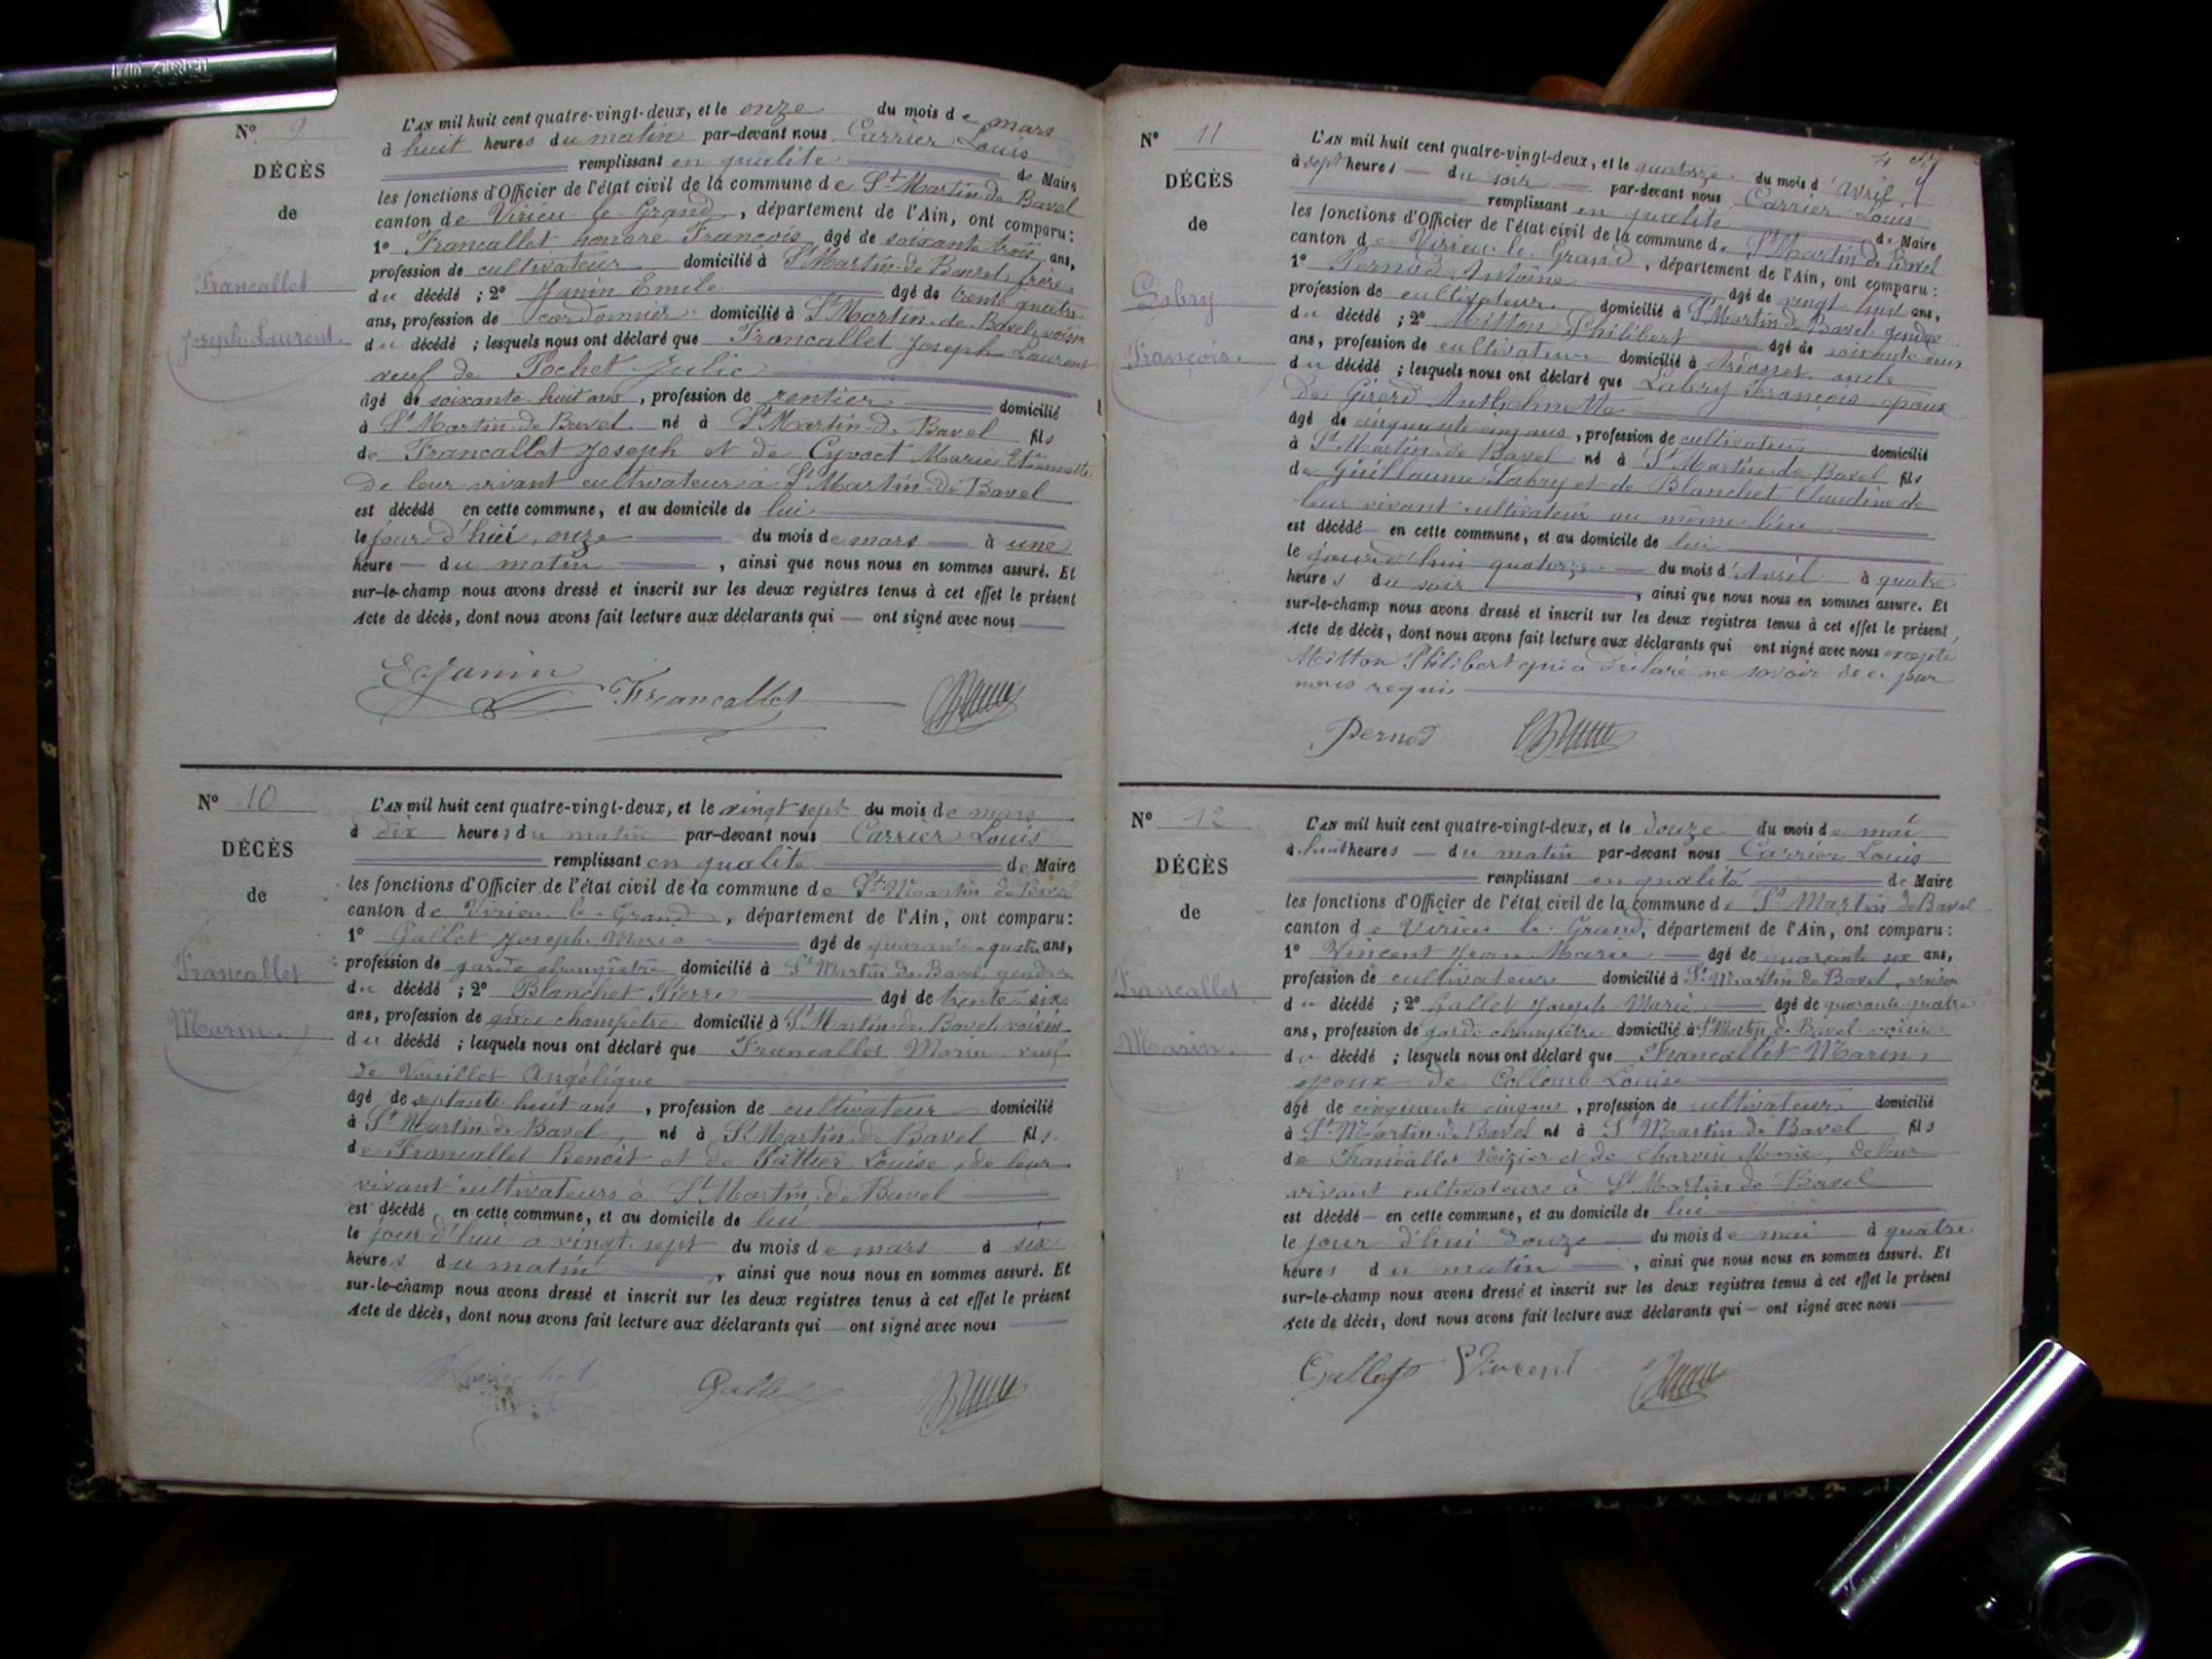 N° 9
DÉCÈS
de
Francallet
Joseph Laurent.
L'AN mil huit cent quatre-vingt-deux, et le onze du mois de mars
à huit heures du matin par-devant nous Carrier Louis
remplissant en qualité de Maire
les fonctions d'Officier de l'état civil de la commune de St Martin de Bavel
canton de Virieu le Grand, département de l'Ain, ont comparu :
1° Francallet honoré François âgé de soixante trois ans,
profession de cultivateur domicilié à St Martin de Bavel, frère
du décédé ; 2° Janin Emile âgé de trente quatre
ans, profession de cordonnier domicilié à St Martin de Bavel, voisin
du décédé ; lesquels nous ont déclaré que Francallet Joseph Laurent
veuf de Pochet Julie
âgé de soixante huit ans, profession de rentier domicilié
à St Martin de Bavel né à St Martin de Bavel fils
de Francallet Joseph et de Cyvoct Marie Etiennette
de leur vivant cultivateur à St Martin de Bavel
est décédé en cette commune, et au domicile de lui
le jour d'hui, onze du mois de mars à une
heure du matin, ainsi que nous nous en sommes assuré. Et
sur-le-champ nous avons dressé et inscrit sur les deux registres tenus à cet effet le présent
Acte de décès, dont nous avons fait lecture aux déclarants qui ont signé avec nous
E Janin Francallet
N° 10
DÉCÈS
de
Francallet
Marin.
L'AN mil huit cent quatre-vingt-deux, et le vingt sept du mois de mars
à dix heures du matin par-devant nous Carrier Louis
remplissant en qualité de Maire
les fonctions d'Officier de l'état civil de la commune de St Martin de Bavel
canton de Virieu le Grand, département de l'Ain, ont comparu :
1° Gallet Joseph Marie âgé de quarante quatre ans,
profession de garde champêtre domicilié à St Martin de Bavel gendre
du décédé ; 2° Blanchet Pierre âgé de trente six
ans, profession de garde champêtre domicilié à St Martin de Bavel voisin
du décédé ; lesquels nous ont déclaré que Francallet Marin veuf
de Vouillot Angélique
âgé de septante huit ans, profession de cultivateur domicilié
à St Martin de Bavel, né à St Martin de Bavel fils
de Francallet Benoit et de Louise, de leur
vivant cultivateurs à St Martin de Bavel
est décédé en cette commune, et au domicile de lui
le jour d'hui a vingt sept du mois de mars à six
heures du matin, ainsi que nous nous en sommes assuré. Et
sur-le-champ nous avons dressé et inscrit sur les deux registres tenus à cet effet le présent
Acte de décès, dont nous avons fait lecture aux déclarants qui ont signé avec nous
Gallet
N° 11
DÉCÈS
de
Labry
François.
L'AN mil huit cent quatre-vingt-deux, et le quatorze du mois d'avril
à sept heures du soir par-devant nous Carrier Louis
remplissant en qualité de Maire
les fonctions d'Officier de l'état civil de la commune de St Martin de Bavel
canton de Virieu le Grand, département de l'Ain, ont comparu :
1° Pernod Antoine âgé de vingt huit ans,
profession de cultivateur domicilié à St Martin de Bavel gendre
du décédé ; 2° Mitton Philibert âgé de soixante
ans, profession de cultivateur domicilié à oncle
du décédé ; lesquels nous ont déclaré que Labry François époux
de Girerd Anthelmette
âgé de cinquante cinq ans, profession de cultivateur domicilié
à St Martin de Bavel né à St Martin de Bavel fils
de Guillaume Labry et de Blanchet Claudine de
leur vivant cultivateur au même lieu
est décédé en cette commune, et au domicile de lui
le jour d'hui quatorze du mois d'Avril à quatre
heures du soir, ainsi que nous nous en sommes assuré. Et
sur-le-champ nous avons dressé et inscrit sur les deux registres tenus à cet effet le présent
Acte de décès, dont nous avons fait lecture aux déclarants qui ont signé avec nous excepté
Mitton Philibert qui a déclaré ne savoir de ce par
nous requis
Pernod
N° 12
DÉCÈS
de
Francallet
Marin.
L'AN mil huit cent quatre-vingt-deux, et le douze du mois de mai
à huit heures du matin par-devant nous Carrier Louis
remplissant en qualité de Maire
les fonctions d'Officier de l'état civil de la commune de St Martin de Bavel
canton de Virieu le Grand, département de l'Ain, ont comparu :
1° Vincent Jean Marie âgé de quarante six ans,
profession de cultivateur domicilié à St Martin de Bavel, voisin
du décédé ; 2° Gallet Joseph Marie âgé de quarante quatre
ans, profession de garde champêtre domicilié à St Martin de Bavel voisin
du décédé ; lesquels nous ont déclaré que Francallet Marin,
époux de Collomb Louise
âgé de cinquante cinq ans, profession de cultivateur domicilié
à St Martin de Bavel né à St Martin de Bavel fils
de Francallet et de Charvin Marie, de leur
vivant cultivateurs à St Martin de Bavel
est décédé en cette commune, et au domicile de lui
le jour d'hui douze du mois de mai à quatre
heures du matin, ainsi que nous nous en sommes assuré. Et
sur-le-champ nous avons dressé et inscrit sur les deux registres tenus à cet effet le présent
Acte de décès, dont nous avons fait lecture aux déclarants qui ont signé avec nous
Gallet Vincent